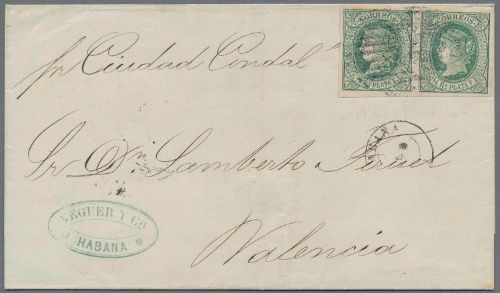 CORREOS CORREOS
RL PLATA F. RL PLATA F.
pr Ciudad Condal
HABANA
Sr. Dn. Lamberto
VEGUER Y Ca.
HABANA
Valencia